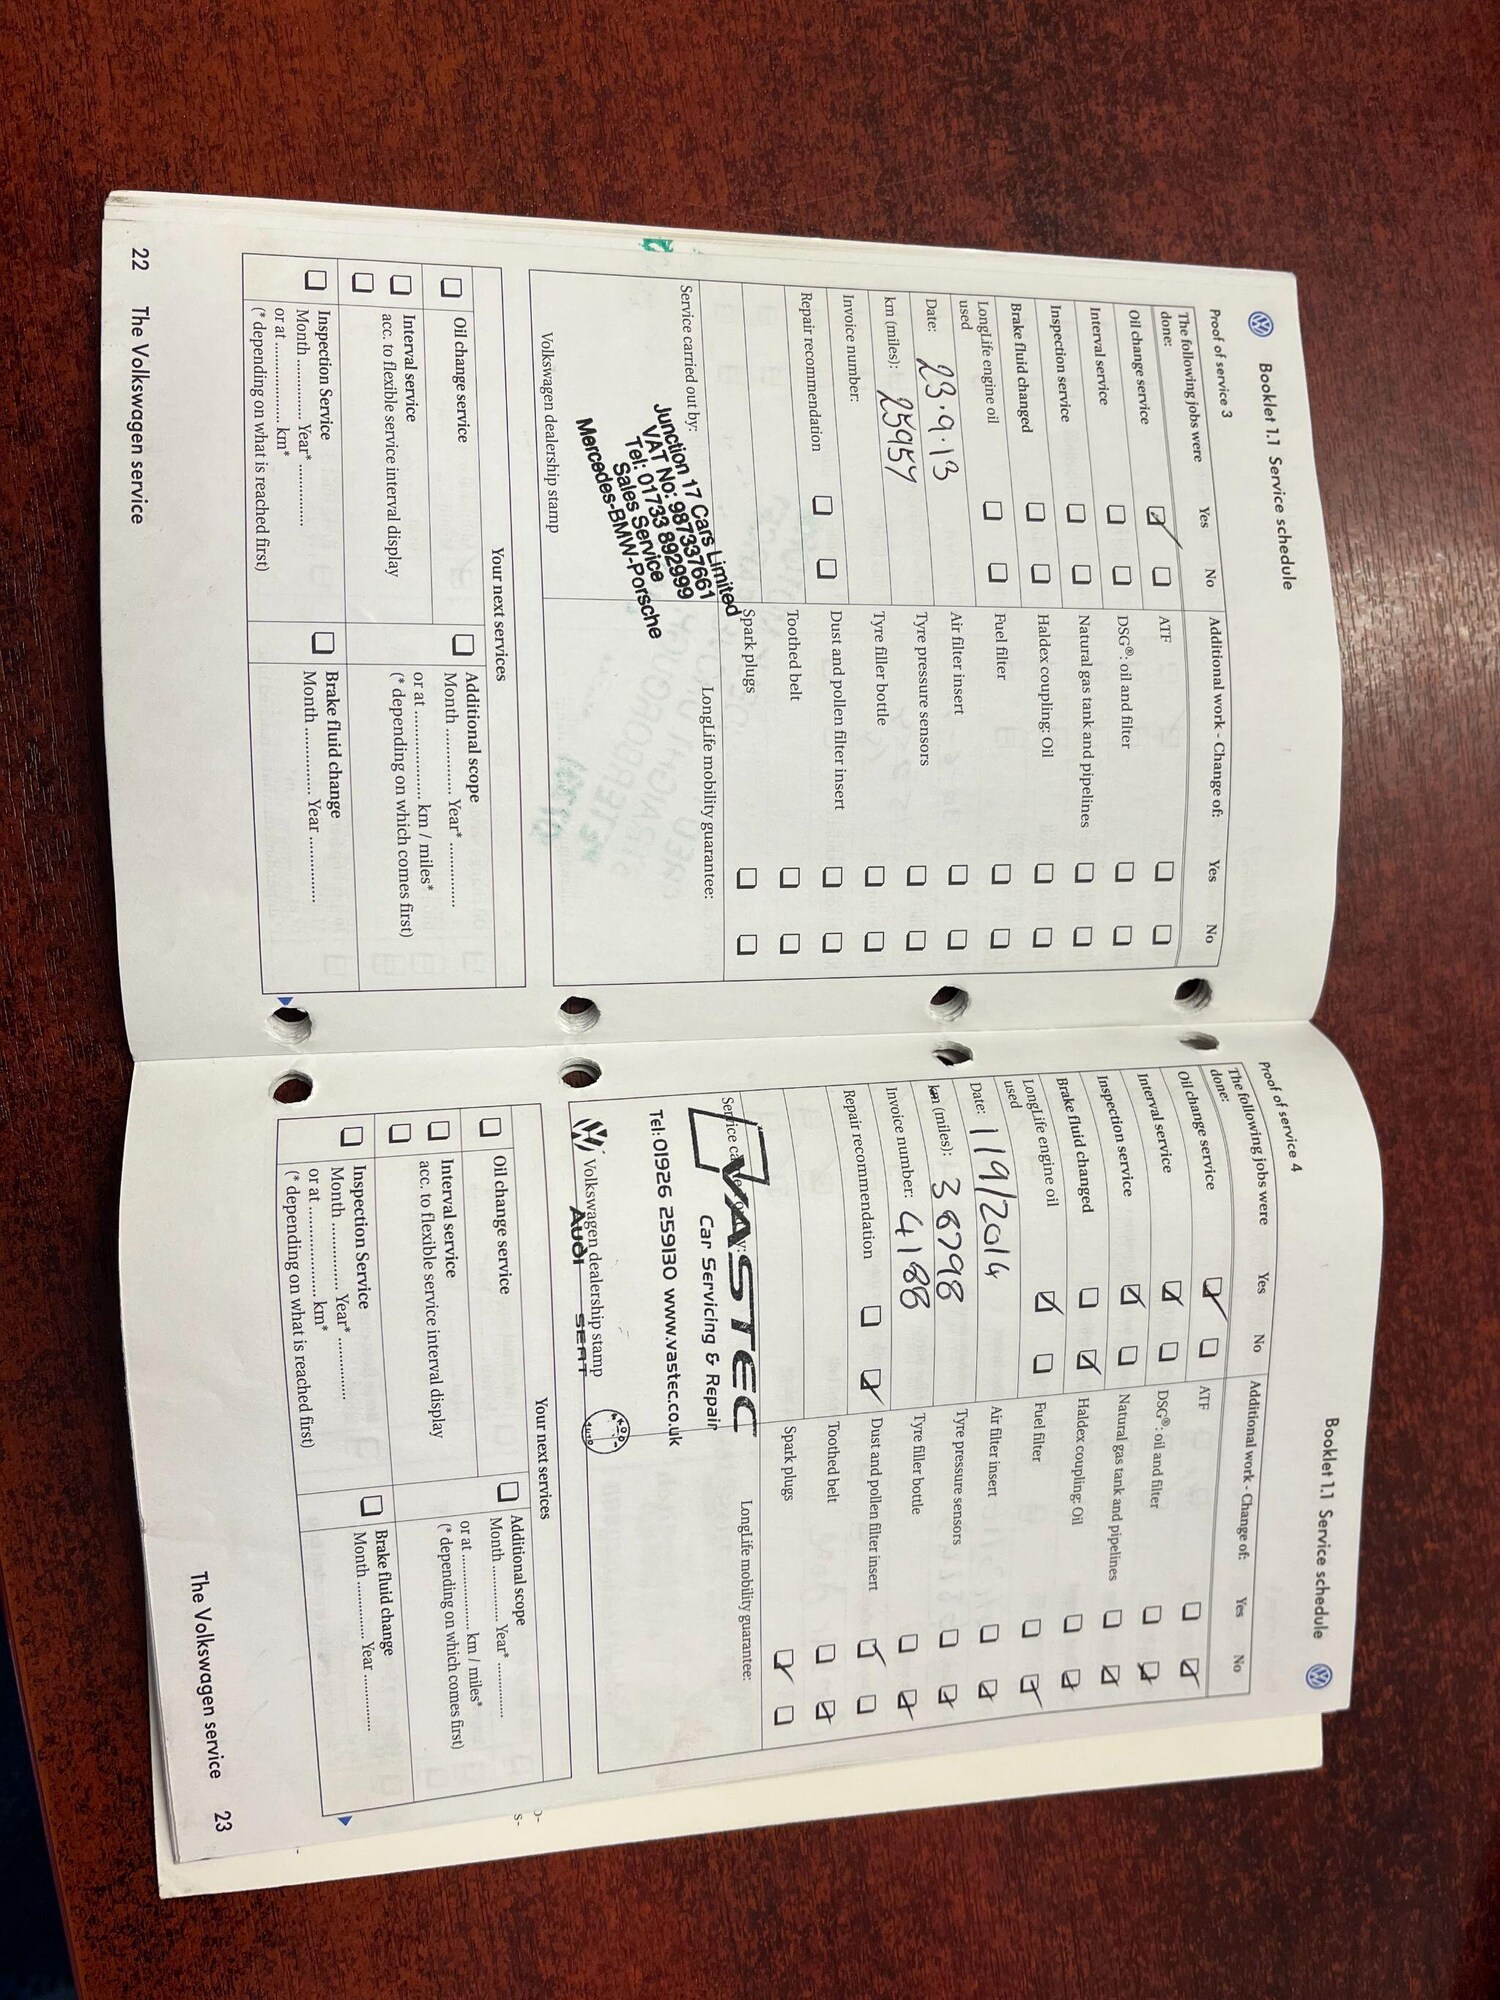 Booklet 1.1 Service schedule
Proof of service 3
The following jobs were done: Yes No
Additional work - Change of: Yes No
Oil change service
Interval service
Inspection service
Brake fluid changed
LongLife engine oil used
Date: 23.9.13
km (miles): 25957
Invoice number:
Repair recommendation
ATF
DSG®: oil and filter
Natural gas tank and pipelines
Haldex coupling: Oil
Fuel filter
Air filter insert
Tyre pressure sensors
Tyre filler bottle
Dust and pollen filter insert
Toothed belt
Spark plugs
Service carried out by:
Junction 17 Cars Limited
VAT No: 987337661
Tel: 01733 892999
Sales Service
Mercedes-BMW-Porsche
Volkswagen dealership stamp
LongLife mobility guarantee:
Your next services
Oil change service
Interval service
acc. to flexible service interval display
Additional scope
Month ............. Year* .............
or at ................. km / miles*
(* depending on which comes first)
Inspection Service
Month ............. Year* .............
or at ................. km*
(* depending on what is reached first)
Brake fluid change
Month ............. Year .............
22 The Volkswagen service
Booklet 1.1 Service schedule
Proof of service 4
The following jobs were done: Yes No
Additional work - Change of: Yes No
Oil change service
Interval service
Inspection service
Brake fluid changed
LongLife engine oil used
Date: 119/2014
km (miles): 38798
Invoice number: 4188
Repair recommendation
ATF
DSG®: oil and filter
Natural gas tank and pipelines
Haldex coupling: Oil
Fuel filter
Air filter insert
Tyre pressure sensors
Tyre filler bottle
Dust and pollen filter insert
Toothed belt
Spark plugs
Service carried out by:
VASTEC
Car Servicing & Repair
Tel: 01926 259130 www.vastec.co.uk
Volkswagen dealership stamp
Audi SEAT
LongLife mobility guarantee:
Your next services
Oil change service
Interval service
acc. to flexible service interval display
Additional scope
Month ............. Year* .............
or at ................. km / miles*
(* depending on which comes first)
Inspection Service
Month ............. Year* .............
or at ................. km*
(* depending on what is reached first)
Brake fluid change
Month ............. Year .............
The Volkswagen service 23